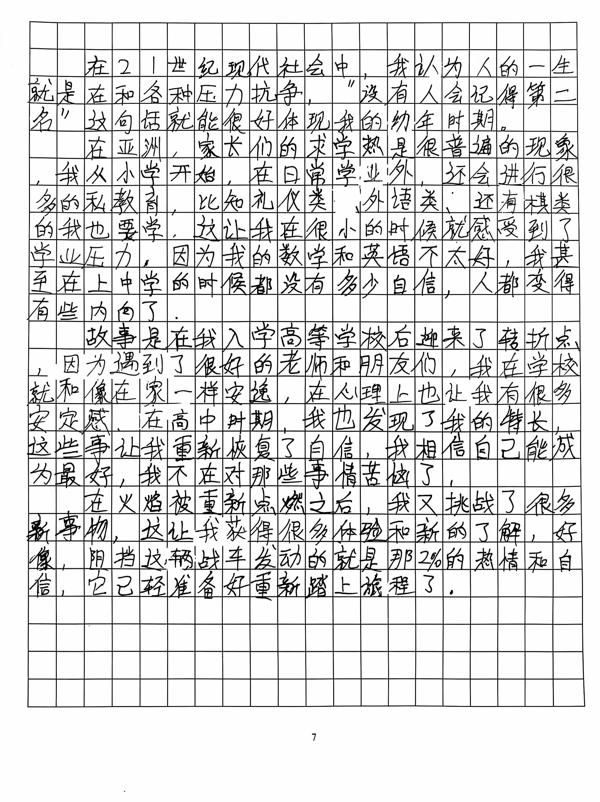 在21世纪现代社会中，我认为人的一生
就是在和各种压力抗争，“没有人会记得第二
名”这句话就能很好体现我的幼年时期。
在亚洲，家长们的求学热是很普遍的现象
，我从小学开始，在日常学业外，还会进行很
多的私教育，比如礼仪类、外语类、还有棋类
的我也要学．这让我在很小的时候就感受到了
学业压力．因为我的数学和英语不太好，我甚
至在上中学的时候都没有多少自信，人都变得
有些内向了．
故事是在我入学高等学校后迎来了转折点
，因为遇到了很好的老师和朋友们，我在学校
就和像在家一样安逸，在心理上也让我有很多
安定感．在高中时期，我也发现了我的特长，
这些事让我重新恢复了自信，我相信自己能成
为最好，我不在对那些事情苦恼了．
在火焰被重新点燃之后，我又挑战了很多
新事物，这让我获得很多体验和新的了解，好
像，阴挡这辆战车发动的就是那2%的热情和自
信，它已轻准备好重新踏上旅程了．
7